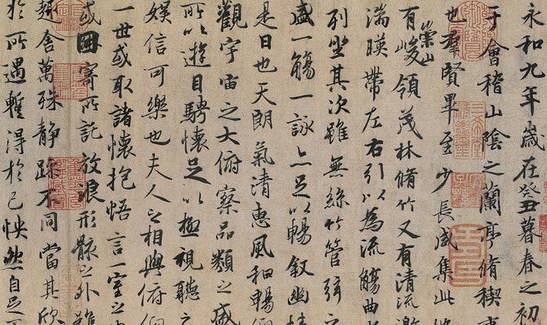 永和九年歲在癸丑暮春之初
于會稽山陰之蘭亭脩稧事
也羣賢畢至少長咸集此
有崇山峻領茂林脩竹又有清流
湍暎帶左右引以為流觴曲
列坐其次雖無絲竹管弦之
盛一觴一詠亦足以暢叙幽情
是日也天朗氣清惠風和暢仰
觀宇宙之大俯察品類之盛
所以遊目騁懷足以極視聽之
娛信可樂也夫人之相與俯仰
一世或取諸懷抱悟言一室之
或因寄所託放浪形骸之外雖
趣舍萬殊靜躁不同當其欣
於所遇蹔得於己怏然自足